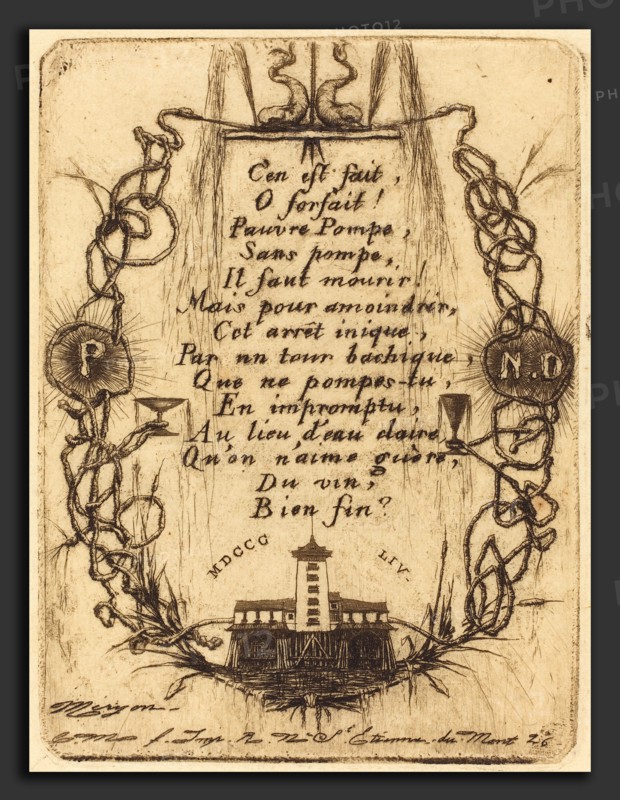 C'en est fait,
O forfait!
Pauvre Pompe,
Sans pompe,
Il faut mourir!
Mais pour amoindrir,
Cet arrêt inique,
Par un tour bachique,
Que ne pompes-tu,
En impromptu,
Au lieu d'eau claire,
Qu'on n'aime guère,
Du vin,
Bien fin?
P
N.D
MDCCC LIV.
Méryon-
C. M. f. Imp. R. N. St Etienne du Mont 26
PHOTO12